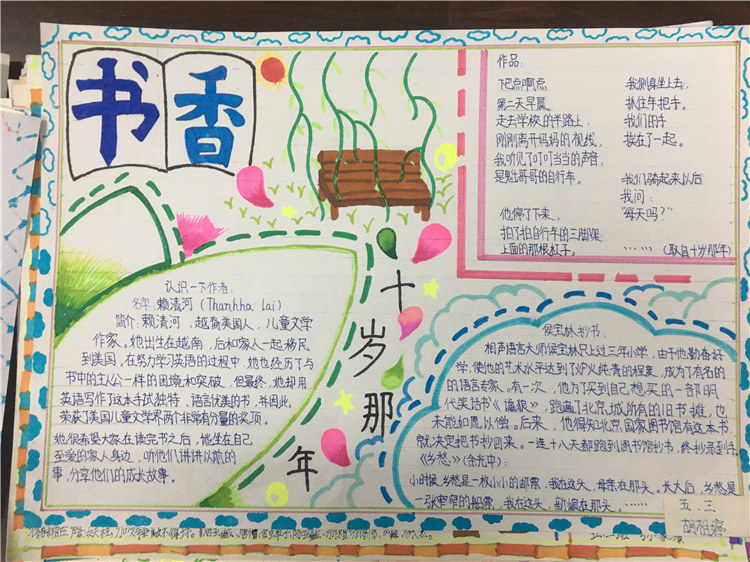 书香
作品:
下巴点啊点
第二天早晨
走去学校的半路上,
刚刚离开妈妈的视线,
我听见了叮叮当当的声音,
是魁哥哥的自行车。
他停了下来,
拍了拍自行车的三脚架
上面的那根杠子。
我侧身坐上去,
抓住车把手。
我们的手
挨在了一起。
我们骑起来以后
我问:
“每天吗?”
……(取自十岁那年)
十岁那年
认识一下作者:
名字:赖清河(Thanhha Lai)
简介:赖清河,越裔美国人,儿童文学
作家。她出生在越南,后和家人一起移民
到美国。在努力学习英语的过程中,她也经历了与
书中的主人公一样的困境和突破,但最终,她却用
英语写作了这本手法独特、语言优美的书,并因此
荣获了美国儿童文学界两个非常有分量的奖项。
她很希望大家在读完书之后,能坐在自己
至爱的家人身边,听他们讲讲以前的
事,分享他们的成长故事。
侯宝林抄书:
相声语言大师侯宝林只上过三年小学,由于他勤奋好
学,使他的艺术水平达到了炉火纯青的程度,成为了有名的
的语言专家。有一次,他为了买到自己想买的一部明
代笑话书《谑浪》,跑遍了北京城所有的旧书摊,也
未能如愿以偿。后来,他得知北京国家图书馆有这本书,
就决定把书抄回来。一连十八天都跑到图书馆抄书,终抄录到手。
《乡愁》(余光中):
小时候,乡愁是一枚小小的邮票,我在这头,母亲在那头。长大后,乡愁是
一张窄窄的船票,我在这头,新娘在那头。……
五.三